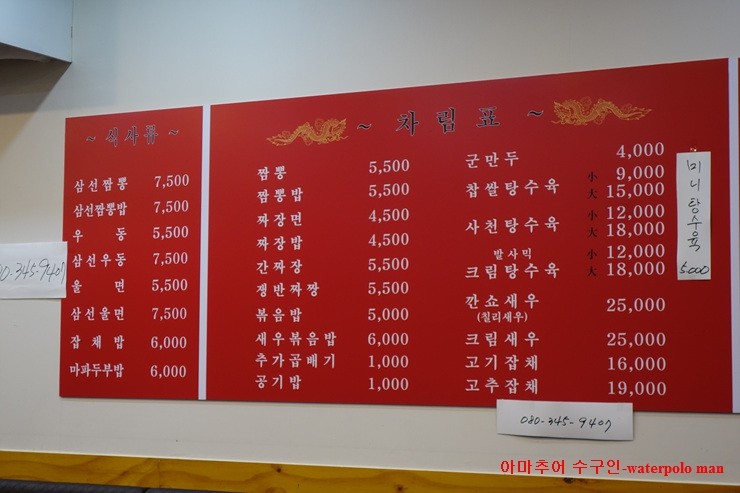 ~ 식사류 ~
삼선짬뽕 7,500
삼선짬뽕밥 7,500
우동 5,500
삼선우동 7,500
울면 5,500
삼선울면 7,500
잡채밥 6,000
마파두부밥 6,000
~ 차림표 ~
짬뽕 5,500
짬뽕밥 5,500
짜장면 4,500
짜장밥 4,500
간짜장 5,500
쟁반짜짱 5,500
볶음밥 5,000
새우볶음밥 6,000
추가곱배기 1,000
공기밥 1,000
군만두 4,000
찹쌀탕수육 小 9,000
大 15,000
사천탕수육 小 12,000
大 18,000
발사믹 小 12,000
크림탕수육 大 18,000
깐쇼새우 25,000
(칠리새우)
크림새우 25,000
고기잡채 16,000
고추잡채 19,000
미니탕수육
5,000
080-345-9407
080-345-9407
아마추어 수구인-waterpolo man